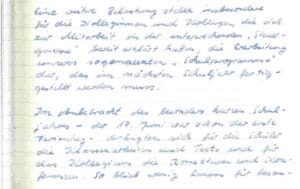 Eine weitere Belastung stellte insbesondere
für die Kolleginnen und Kollegen, die sich
zur Mitarbeit in der entsprechenden „Steuer-
gruppe" bereit erklärt hatten, die Erarbeitung
unseres sogenannten „Schulprogramms"
dar, das im nächsten Schuljahr fertig-
gestellt werden muss.
Im Anbetracht des besonders kurzen Schul-
jahres - der 17. Juni war schon der erste
Ferientag - drängten sich für die Schüler
die Klassenarbeiten und Tests und für
das Kollegium die Korrekturen und Kon-
ferenzen. So blieb wenig Raum für beson-